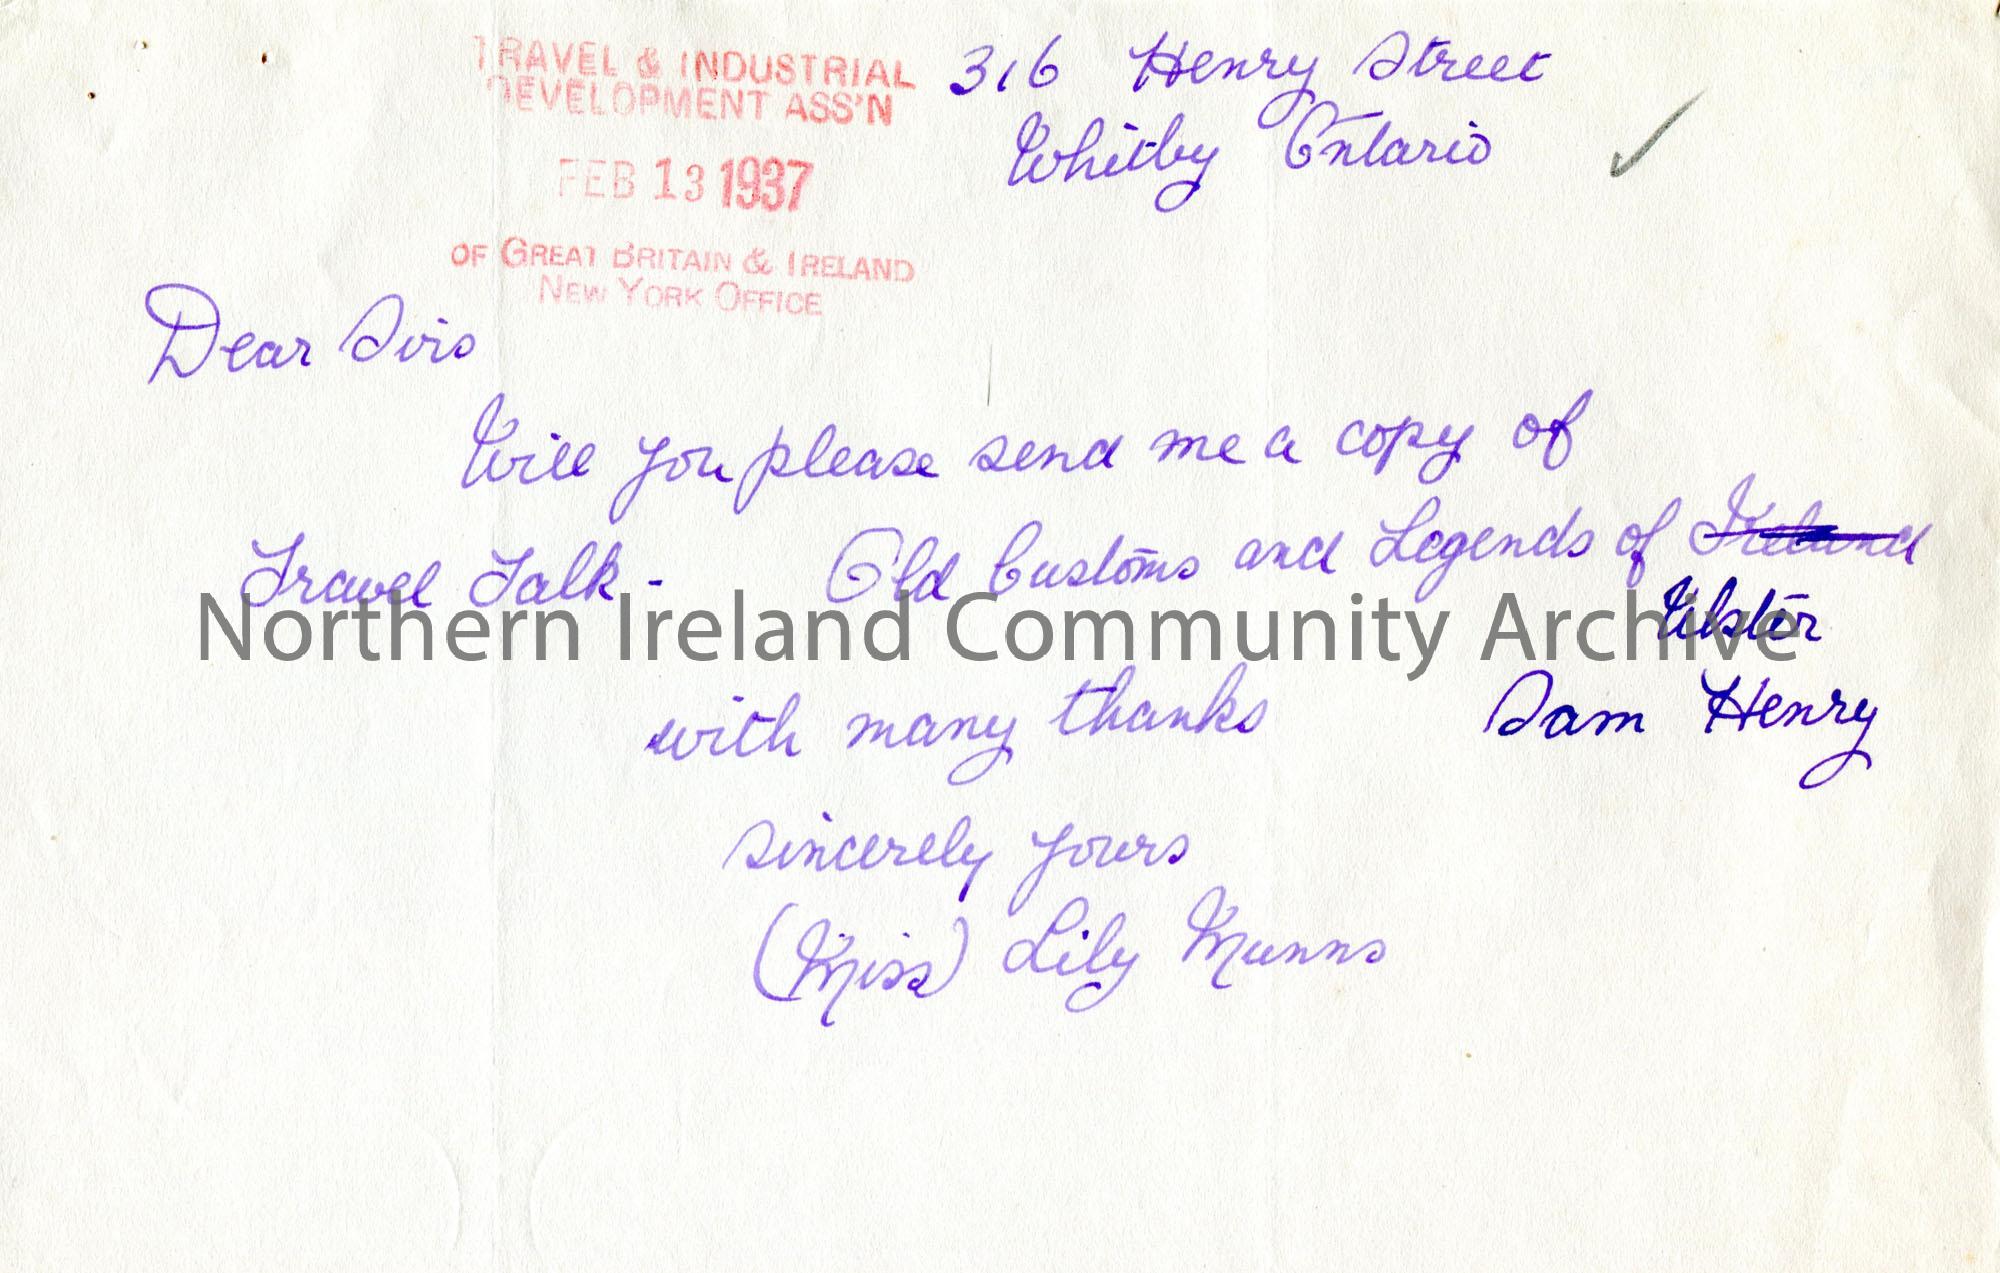 TRAVEL & INDUSTRIAL
DEVELOPMENT ASS'N
FEB 13 1937
OF GREAT BRITAIN & IRELAND
NEW YORK OFFICE
316 Henry Street
Whitby Ontario
Dear Sirs
Will you please send me a copy of
Travel Talk - Old Customs and Legends of Ireland
Ulster
Northern Ireland Community Archive
with many thanks Sam Henry
sincerely yours
(Miss) Lily Munns